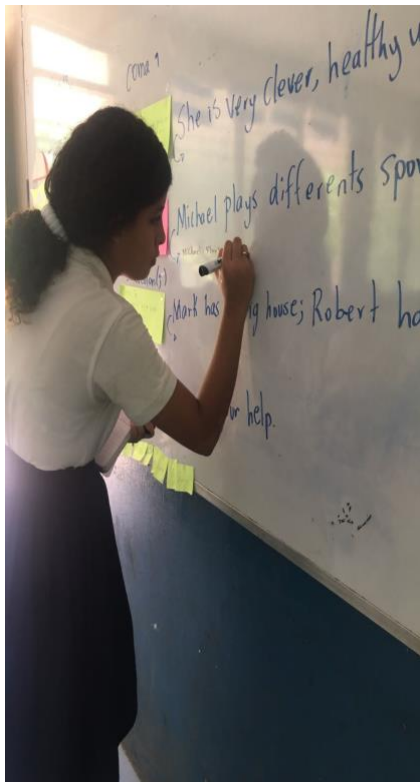 coma 9
She is very clever, healthy
Michael plays differents spor
Mark has g house; Robert ha
ur help.